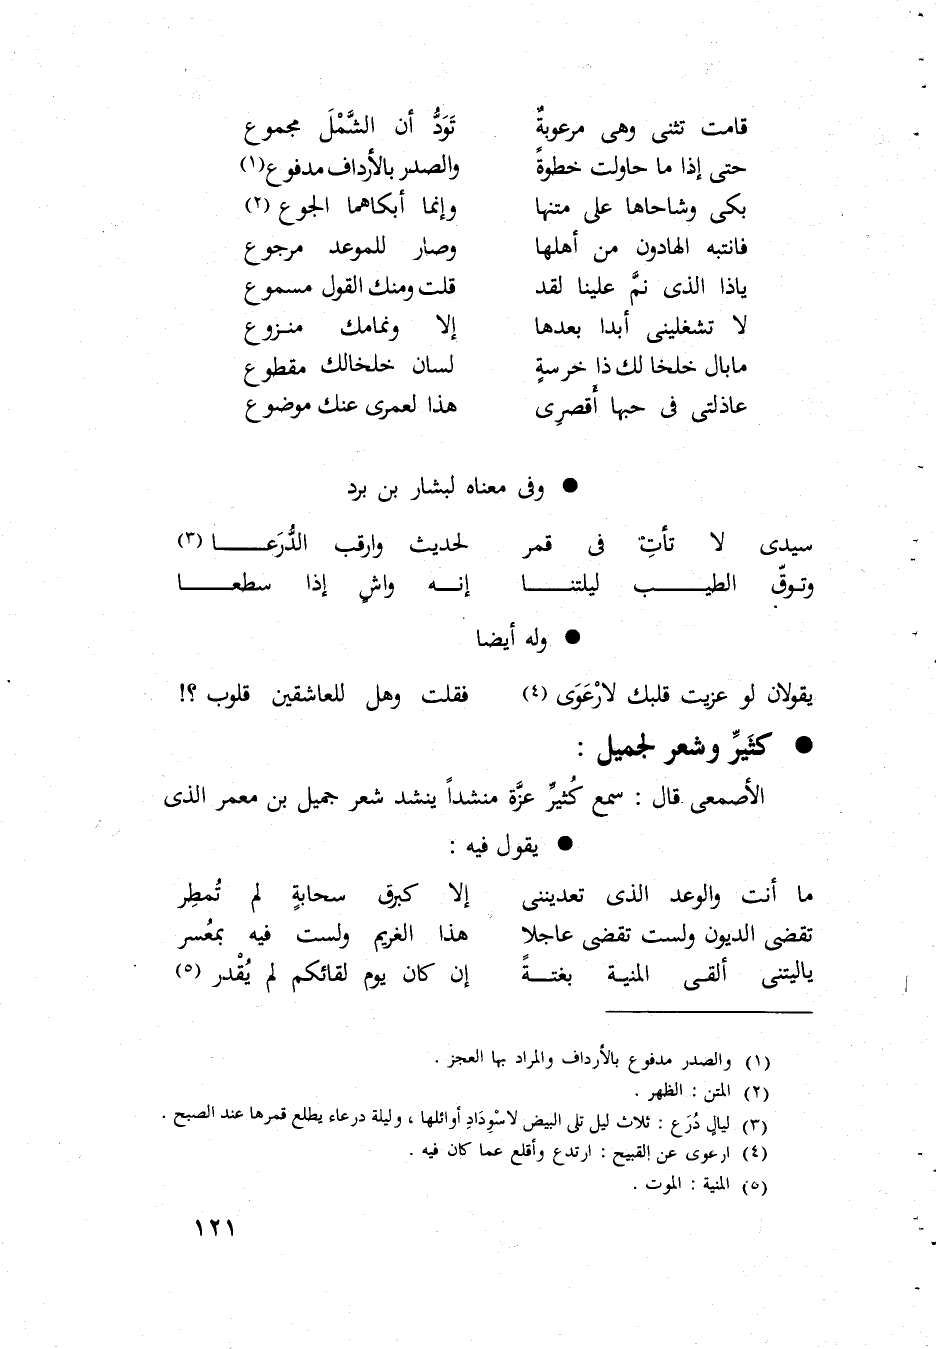 قامت تثنى وهى مرعوبةٌ تَوَدُّ أن الشَّمْلَ مجموع
حتى إذا ما حاولت خطوةً والصدر بالأرداف مدفوع (١)
بكى وشاحاها على متنها وإنما أبكاهما الجوع (٢)
فانتبه الهادون من أهلها وصار للموعد مرجوع
ياذا الذى نمَّ علينا لقد قلت ومنك القول مسموع
لا تشغلينى أبدا بعدها إلا ونمامك منزوع
مابال خلخا لك ذا خرسةٍ لسان خلخالك مقطوع
عاذلتى فى حبها أَقصرِى هذا لعمرى عنك موضوع
● وفى معناه لبشار بن برد
سيدى لا تأتِ فى قمر لحديث وارقب الدُّرَعـــا (٣)
وتوقّ الطيـــب ليلتنـــا إنـــه واشٍ إذا سطعـــا
● وله أيضا
يقولان لو عزيت قلبك لارْعَوَى (٤) فقلت وهل للعاشقين قلوب ؟!
● كثَيرِّ وشعر لجميل :
الأصمعى قال : سمع كُثيرِّ عزَّة منشداً ينشد شعر جميل بن معمر الذى
● يقول فيه :
ما أنت والوعد الذى تعديننى إلا كبرق سحابةٍ لم تُمطِر
تقضى الديون ولست تقضى عاجلا هذا الغريم ولست فيه بمعُسر
ياليتنى ألقى المنيـة بغتـــةً إن كان يوم لقائكم لم يُقْدر (٥)
(١) والصدر مدفوع بالأرداف والمراد بها العجز .
(٢) المتن : الظهر .
(٣) ليالٍ دُرَع : ثلاث ليل تلى البيض لاسْودَادِ أوائلها ، وليلة درعاء يطلع قمرها عند الصبح .
(٤) ارعوى عن القبيح : ارتدع وأقلع عما كان فيه .
(٥) المنية : الموت .
١٢١